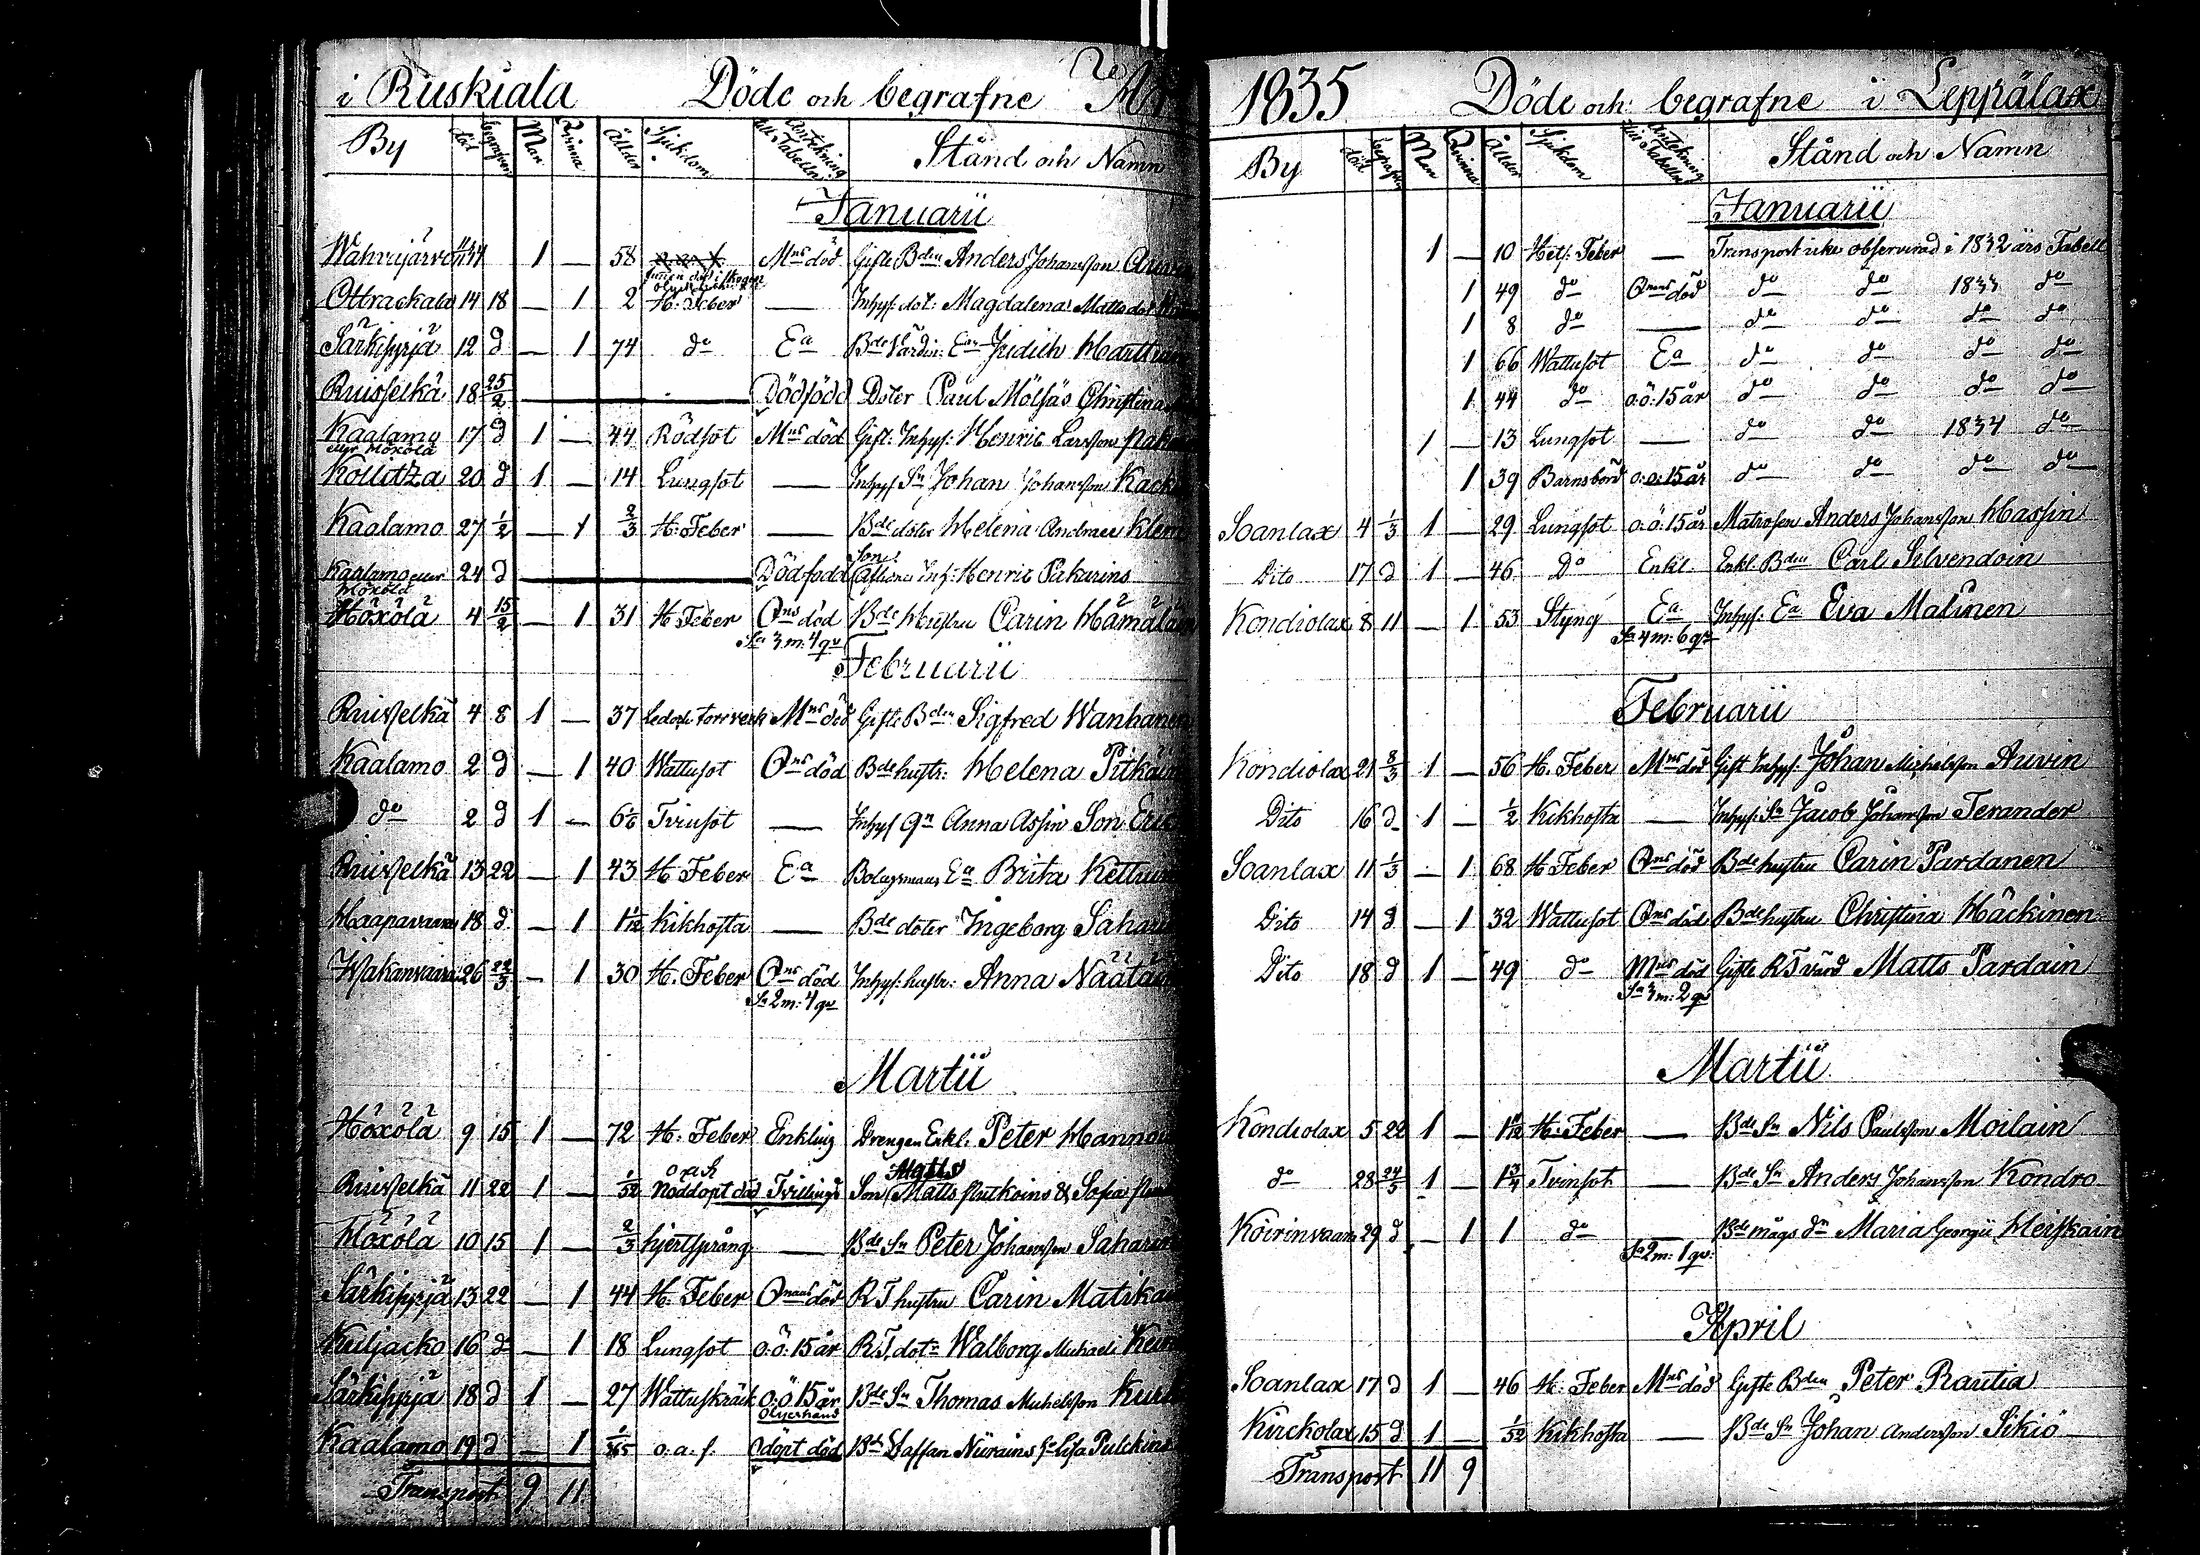 i Ruskiala Döde och begrafne År
By död begrafven Man Qvinna Ålder Sjukdom Anteckning till Tabellen Stånd och Namn
Januarii
58 Mns död Gifte Bden Anders Johansson
14 18 — 1 2 H: Feber — Inhys. dot: Magdalena Matts dot
Särkisyrjä 12 d — 1 74 do Ea
Ruisselkä 18 25/2 Dödfödd Doter Paul Mölsäs Christina
Kaalamo 17 d 1 — 44 Rödsot Mns död Gift: Inhys: Henric Larsson
eller Höxölä
Kollatza 20 d 1 — 14 Lungsot — Inhys Sn Johan Johansson
Kaalamo 27 1/2 — 1 2/3 H: Feber — Bde doter Helena Andrae
Kaalamo eller 24 d Dödfödd Inh: Henric Pakarins
Höxölä
Höxölä 4 15/2 — 1 31 H Feber Qns död Bde hustru Carin
Sa 3 m: 4 qv
Februarii
Ruisselkä 4 8 1 — 37 Mns död Gifte Bden Sigfred Wanhanen
Kaalamo 2 d — 1 40 Wattusot Qns död Bde hustr: Helena
do 2 d 1 — Tvinsot — Inhys Qn Anna Assin Son
Ruisselkä 13 22 — 1 43 H Feber Ea Ea Brita
Haapavaara 18 d — 1 1 1/12 Kikhosta — Bde doter Ingeborg
26 22/3 — 1 30 H. Feber Qns död Inhys: hustr: Anna
Sa 2 m: 4 qv
Martii
Höxölä 9 15 1 — 72 H. Feber Enkling Drengen Enkl: Peter
Ruisselkä 11 22 1 — 1/52 o a s Nöddöpt död Tvillings Son Matts
Höxölä 10 15 1 — 2/3 hjertsprång — Bde Sn Peter Johansson
Särkisyrjä 13 22 — 1 44 H. Feber Qnas död R T hustru Carin
Kuljacko 16 d — 1 18 Lungsot o:ö: 15 år R.T. dotr Walborg Michaeli
Särkisyrjä 18 d 1 — 27 o:ö 15 år Bde Sn Thomas Michelsson
Olyckshänd
Kaalamo 19 d — 1 1/365 o. a. s. odöpt död Lisa Pulckins
Transport 9 11
1835 Döde och begrafne i Leppälax
By död begrafven Man Qvinna Ålder Sjukdom Anteckning till Tabellen Stånd och Namn
Januarii
1 — 10 Hets: Feber — Transport icke observerad i 1832 års Tabell
1 49 do Qnns död do do 1833 do
1 8 do — do do do do
1 66 Wattusot Ea do do do do
1 44 do o:ö: 15 år do do do do
1 — 13 Lungsot — do do 1834 do
1 39 Barnsbörd o:ö: 15 år do do do do
Soanlax 4 1/3 1 — 29 Lungsot o:ö: 15 år Matrosen Anders Johansson Hassin
Dito 17 d 1 — 46 Do Enkl. Enkl. Bden Carl Silvendoin
Kondiolax 8 11 — 1 53 Styng Ea Inhys: Ea Eva Malinen
Sa 4 m: 6 qv
Februarii
Kondiolax 21 8/3 1 — 56 H. Feber Mns död Gift Inhys: Johan Michelsson Auvin
Dito 16 d 1 — 1/2 Kikhosta — Inhys: Sn Jacob Johansson Terander
Soanlax 11 1/3 — 1 68 H Feber Qns död Bde hustru Carin Pardanen
Dito 14 d — 1 32 Wattusot Qns död Bde hustru Christina Häckinen
Dito 18 d 1 — 49 do Mns död Gifte R T värd Matts Pardain
Sa 3 m: 2 qv
Martii
Kondiolax 5 22 1 — H: Feber — Bde Sn Nils Paulsson Moilain
do 28 1 — 1 3/4 Tvinsot — Bde Sn Anders Johansson Kondro
Koirinvaara 29 d — 1 1 do — Bde mågs dr Maria Georgii Heiskain
Sa 2 m: 1 qv:
April
Soanlax 17 d 1 — 46 H. Feber Mns död Gifte Bden Peter Rautia
Kirckolax 15 d 1 — 1/52 Kikhosta — Bde Sn Johan Andersson Sikiö
Transport 11 9